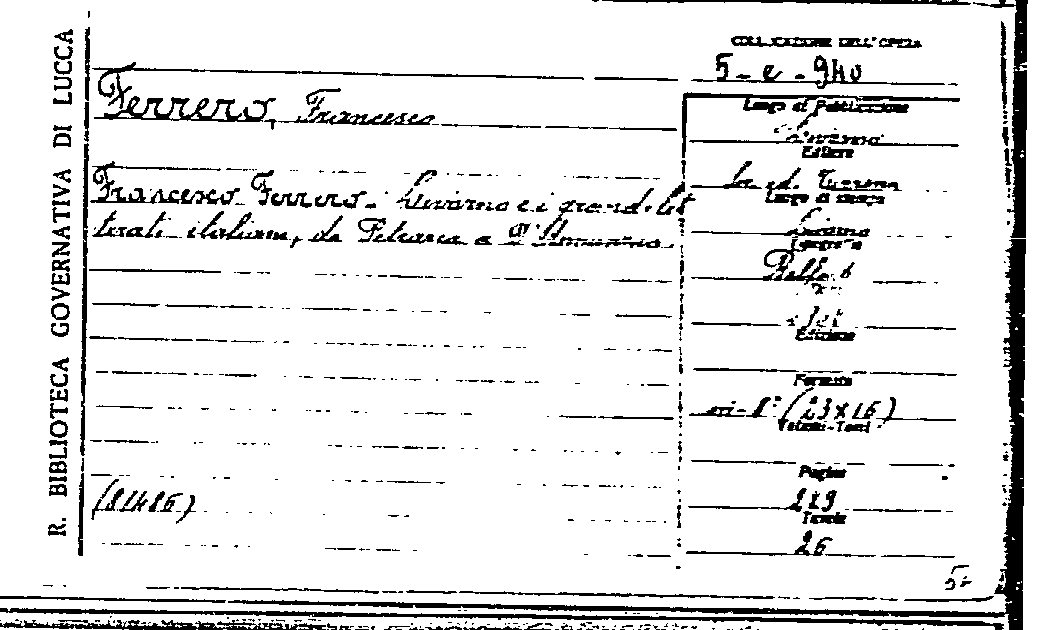 R. BIBLIOTECA GOVERNATIVA DI LUCCA
COLLOCAZIONE DELL'OPERA
5-e-940
Ferrero, Francesco
Francesco Ferrero - Livorno e i grandi let
terati italiani, da Petrarca a D'Annunzio.
Luogo di Pubblicazione
Livorno
Editore
ed.
Luogo di stampa
Livorno
Tipografia
Belfort
Edizione
Formato
in-8° (23x16)
Volumi-Tomi
Pagine
Tavole
26
(81486)
5-